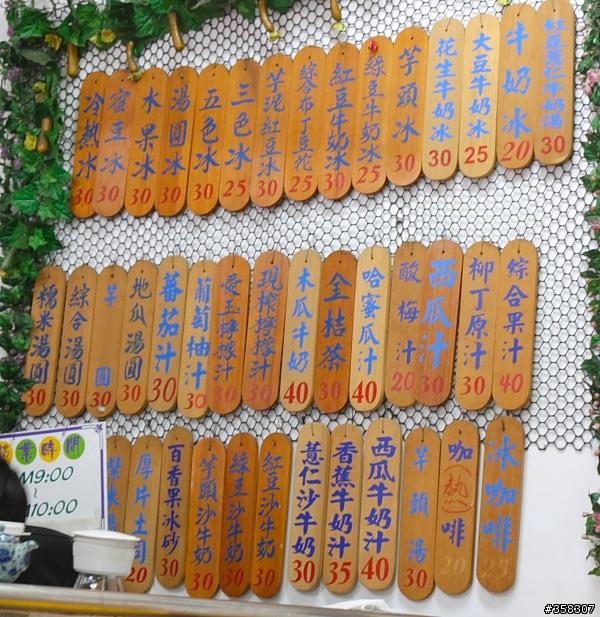 冷熱冰 30
蜜豆冰 30
水果冰 30
湯圓冰 30
五色冰 30
三色冰 25
芋泥紅豆冰 30
綜合布丁豆花 25
紅豆牛奶冰 30
綠豆牛奶冰 25
芋頭冰 30
花生牛奶冰 30
大豆牛奶冰 25
牛奶冰 20
紅豆薏仁牛奶湯 30
糯米湯圓 30
綜合湯圓 30
芋圓 30
地瓜湯圓 30
蕃茄汁 30
葡萄柚汁 30
愛玉檸檬汁 30
現榨檸檬汁 30
木瓜牛奶 40
金桔茶 30
哈蜜瓜汁 40
酸梅汁 20
西瓜汁 30
柳丁原汁 30
綜合果汁 40
紫米湯
厚片土司 20
百香果冰砂 30
芋頭沙牛奶 30
綠豆沙牛奶 30
紅豆沙牛奶 30
薏仁沙牛奶 30
香蕉牛奶汁 35
西瓜牛奶汁 40
芋頭湯 30
咖熱啡 20
冰咖啡 25
業時間
M9:00
~
10:00
#358307